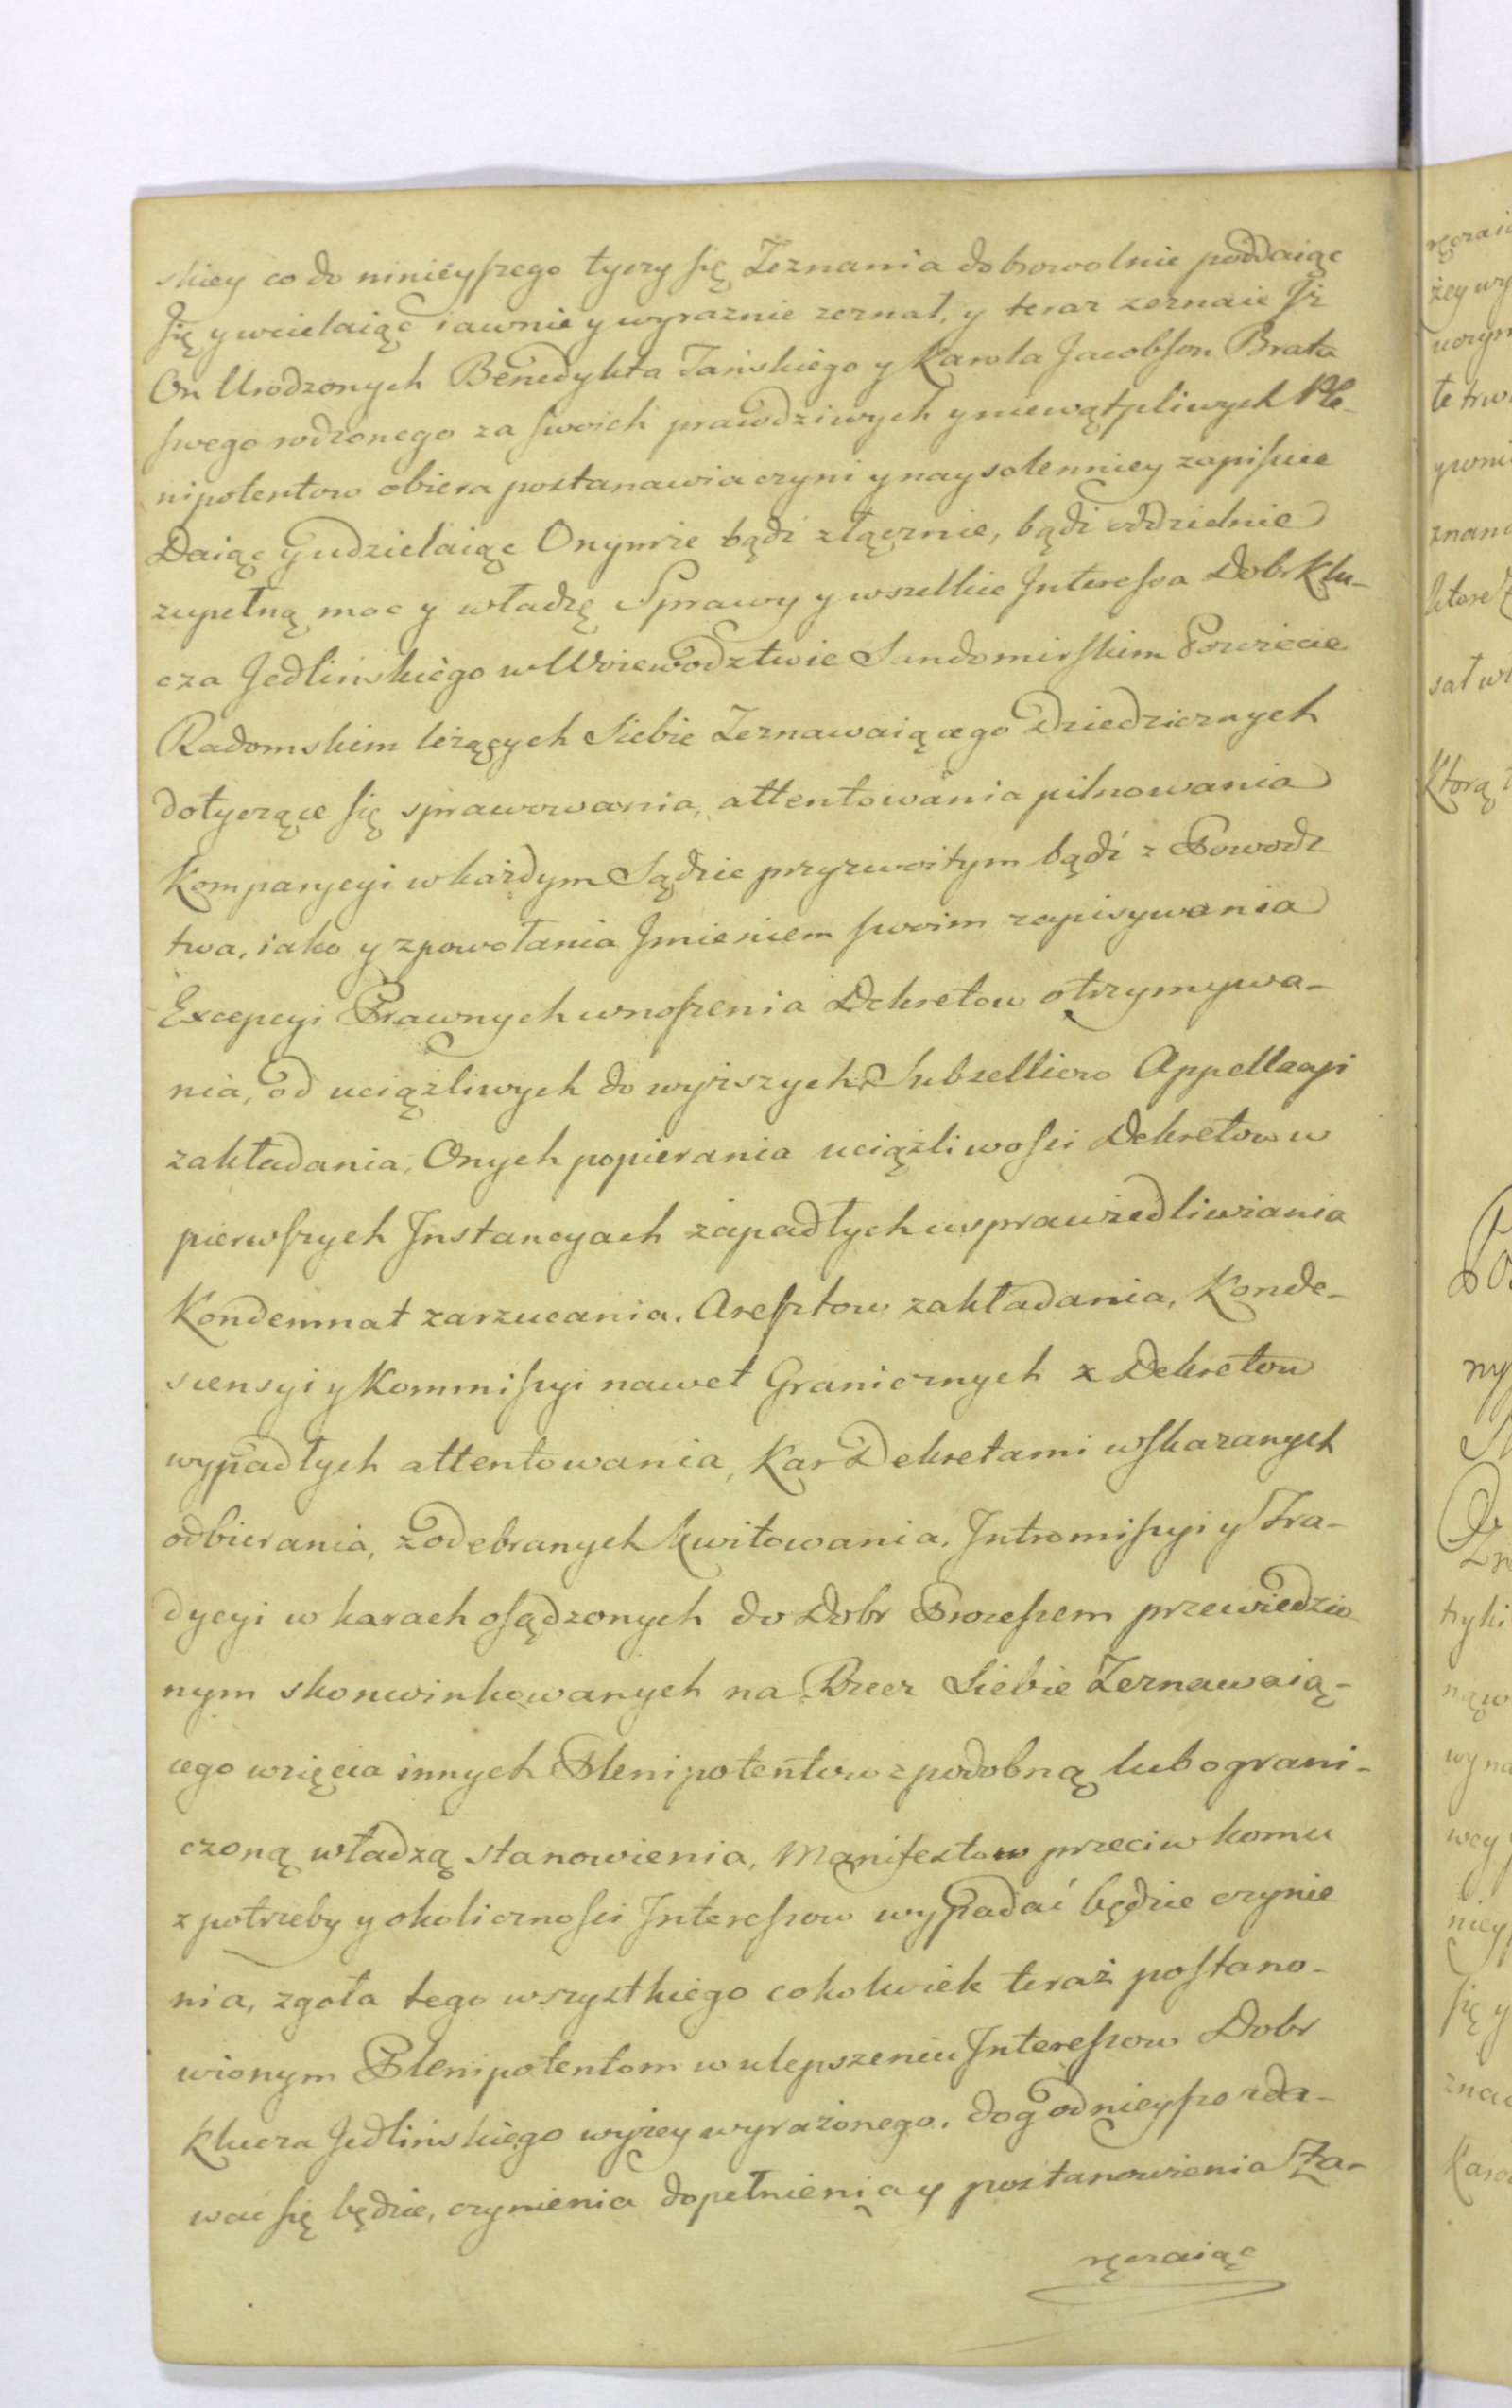 skiey co do ninieyszego tyczy się Zeznania dobrowolnie poddaiąc
się y wcielaiąc iawnie y wyraznie zeznał, y teraz zeznaie Iż
On Urodzonych Benedykta Tańskiego y Karola Jacobson Brata
swego rodzonego za swoich prawdziwych y niewątpliwych Ple-
nipotentow obiera postanawia czyni y naysolenniey zapisuie
Daiąc y udzielaiąc Onymże bądź złącznie, bądź oddzielnie
zupełną moc y władzę Sprawy y wszelkie Interessa Dobr Klu-
cza Jedlińskiego w Woiewodztwie Sandomirskim Powiecie
Radomskim leżących Siebie Zeznawaiącego Dziedzicznych
dotyczące się sprawowania, attentowania pilnowania
Komparycyi w każdym Sądzie przyzwoitym bądź z Powodz
twa, iako y z powołania Imieniem swoim zapisywania
Excepcyi Prawnych wnoszenia Dekretow otrzymywa-
nia, od uciążliwych do wyższych Subselliow Appellacyi
zakładania, Onych popierania uciążliwości Dekretow w
pierwszych Instancyach zapadłych usprawiedliwiania
Kondemnat zarzucania. Aresztow zakładania, Konde-
scensyi y Kommissyi nawet Granicznych z Dekretow
wypadłych attentowania, Kar Dekretami wskazanych
odbierania, z odebranych kwitowania, Intromissyi y Tra-
dycyi w karach osądzonych do Dobr Processem przewiedzio
nym skonwinkowanych na Rzecz Siebie Zeznawaią-
cego wzięcia innych Plenipotentow z podobną lub ograni-
czoną władzą stanowienia, Manifestow przeciw komu
z potrzeby y okoliczności Interessow wypadać będzie czynie
nia, zgoła tego wszystkiego cokolwiek teraz postano-
wionym Plenipotentom w ulepszeniu Interessow Dobr
Klucza Jedlińskiego wyżey wyrażonego, dogodnieysze zda-
wać się będzie, czynienia dopełnienia y postanowienia Za-
ręczaiąc